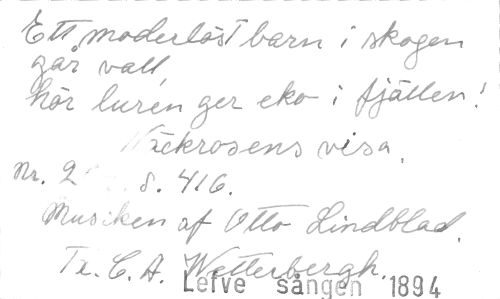 Ett moderlöst barn i skogen
går vall,
hör luren ger eko i fjällen!
Näckrosens visa.
Nr. 2 s. 416.
Musiken af Otto Lindblad.
Tx. C. A. Wetterbergh.
Lefve sången 1894